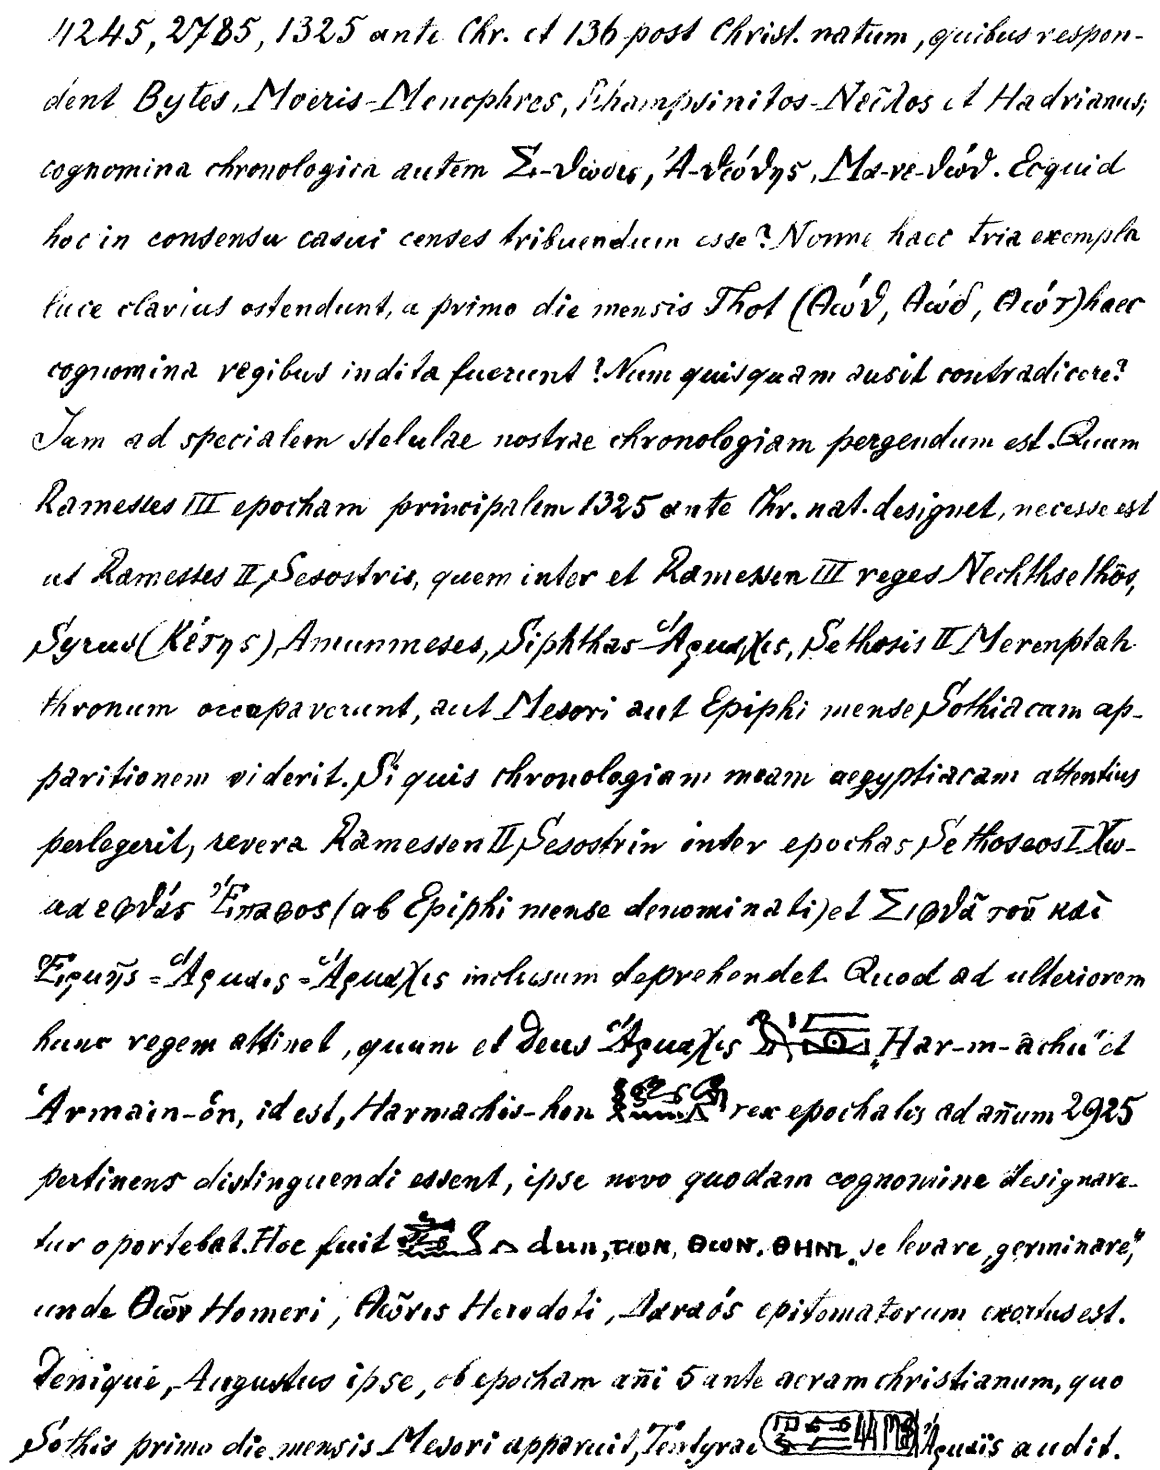 4245, 2785, 1325 ante Chr. et 136 post Christ. natum, quibus respon-
dent Bytes, Moeris-Menophres, Rhampsinitos-Νεῖλος et Hadrianus;
cognomina chronologica autem Σι-θώσις, Ἀ-θώθης, Μα-νε-θώθ. Ecquid
hoc in consensu casui censes tribuendum esse? Nonne haec tria exempla
luce clarius ostendunt, a primo die mensis Thot (Θωύθ, Θωύδ, Θωύτ) haec
cognomina regibus indita fuerunt? Num quisquam ausit contradicere?
Jam ad specialem stelulae nostrae chronologiam pergendum est. Quum
Ramesses III epocham principalem 1325 ante Chr. nat. designet, necesse est
ut Ramesses II Sesostris, quem inter et Ramessen III reges Nechthsethôs,
Syrus (Κέτης), Amunmeses, Siphthas Ἅρμαχις, Sethosis II Merenptah
thronum occupaverunt, aut Mesori aut Epiphi mense Sothiacam ap-
paritionem viderit. Si quis chronologiam meam aegyptiacam attentius
perlegerit, revera Ramessen II Sesostrin inter epochas Sethoseos I
Ἔπαφος (ab Epiphi mense denominati) et Σιφθᾶ τοῦ καὶ
Ἑρμῆς = Ἅρμαις = Ἅρμαχις inclusum deprehendet. Quod ad ulteriorem
hunc regem attinet, quum et Deus Ἅρμαχις Har-m-achu et
Armain-ôn, id est, Harmachis-hon rex epochalis ad añum 2925
pertinens distinguendi essent, ipse novo quodam cognomine designare-
tur oportebat. Hoc fuit dun, ΤΩΟΝ, ΘΩΟΝ. ΘΗΝ, se levare, germinare,"
unde Θῶν Homeri, Θῶνις Herodoti, Δαναός epitomatorum exortus est.
Denique, Augustus ipse, ob epocham añi 5 ante aeram christianum, quo
Sothis primo die mensis Mesori apparuit, Tentyrae Ἅρμαϊς audit.